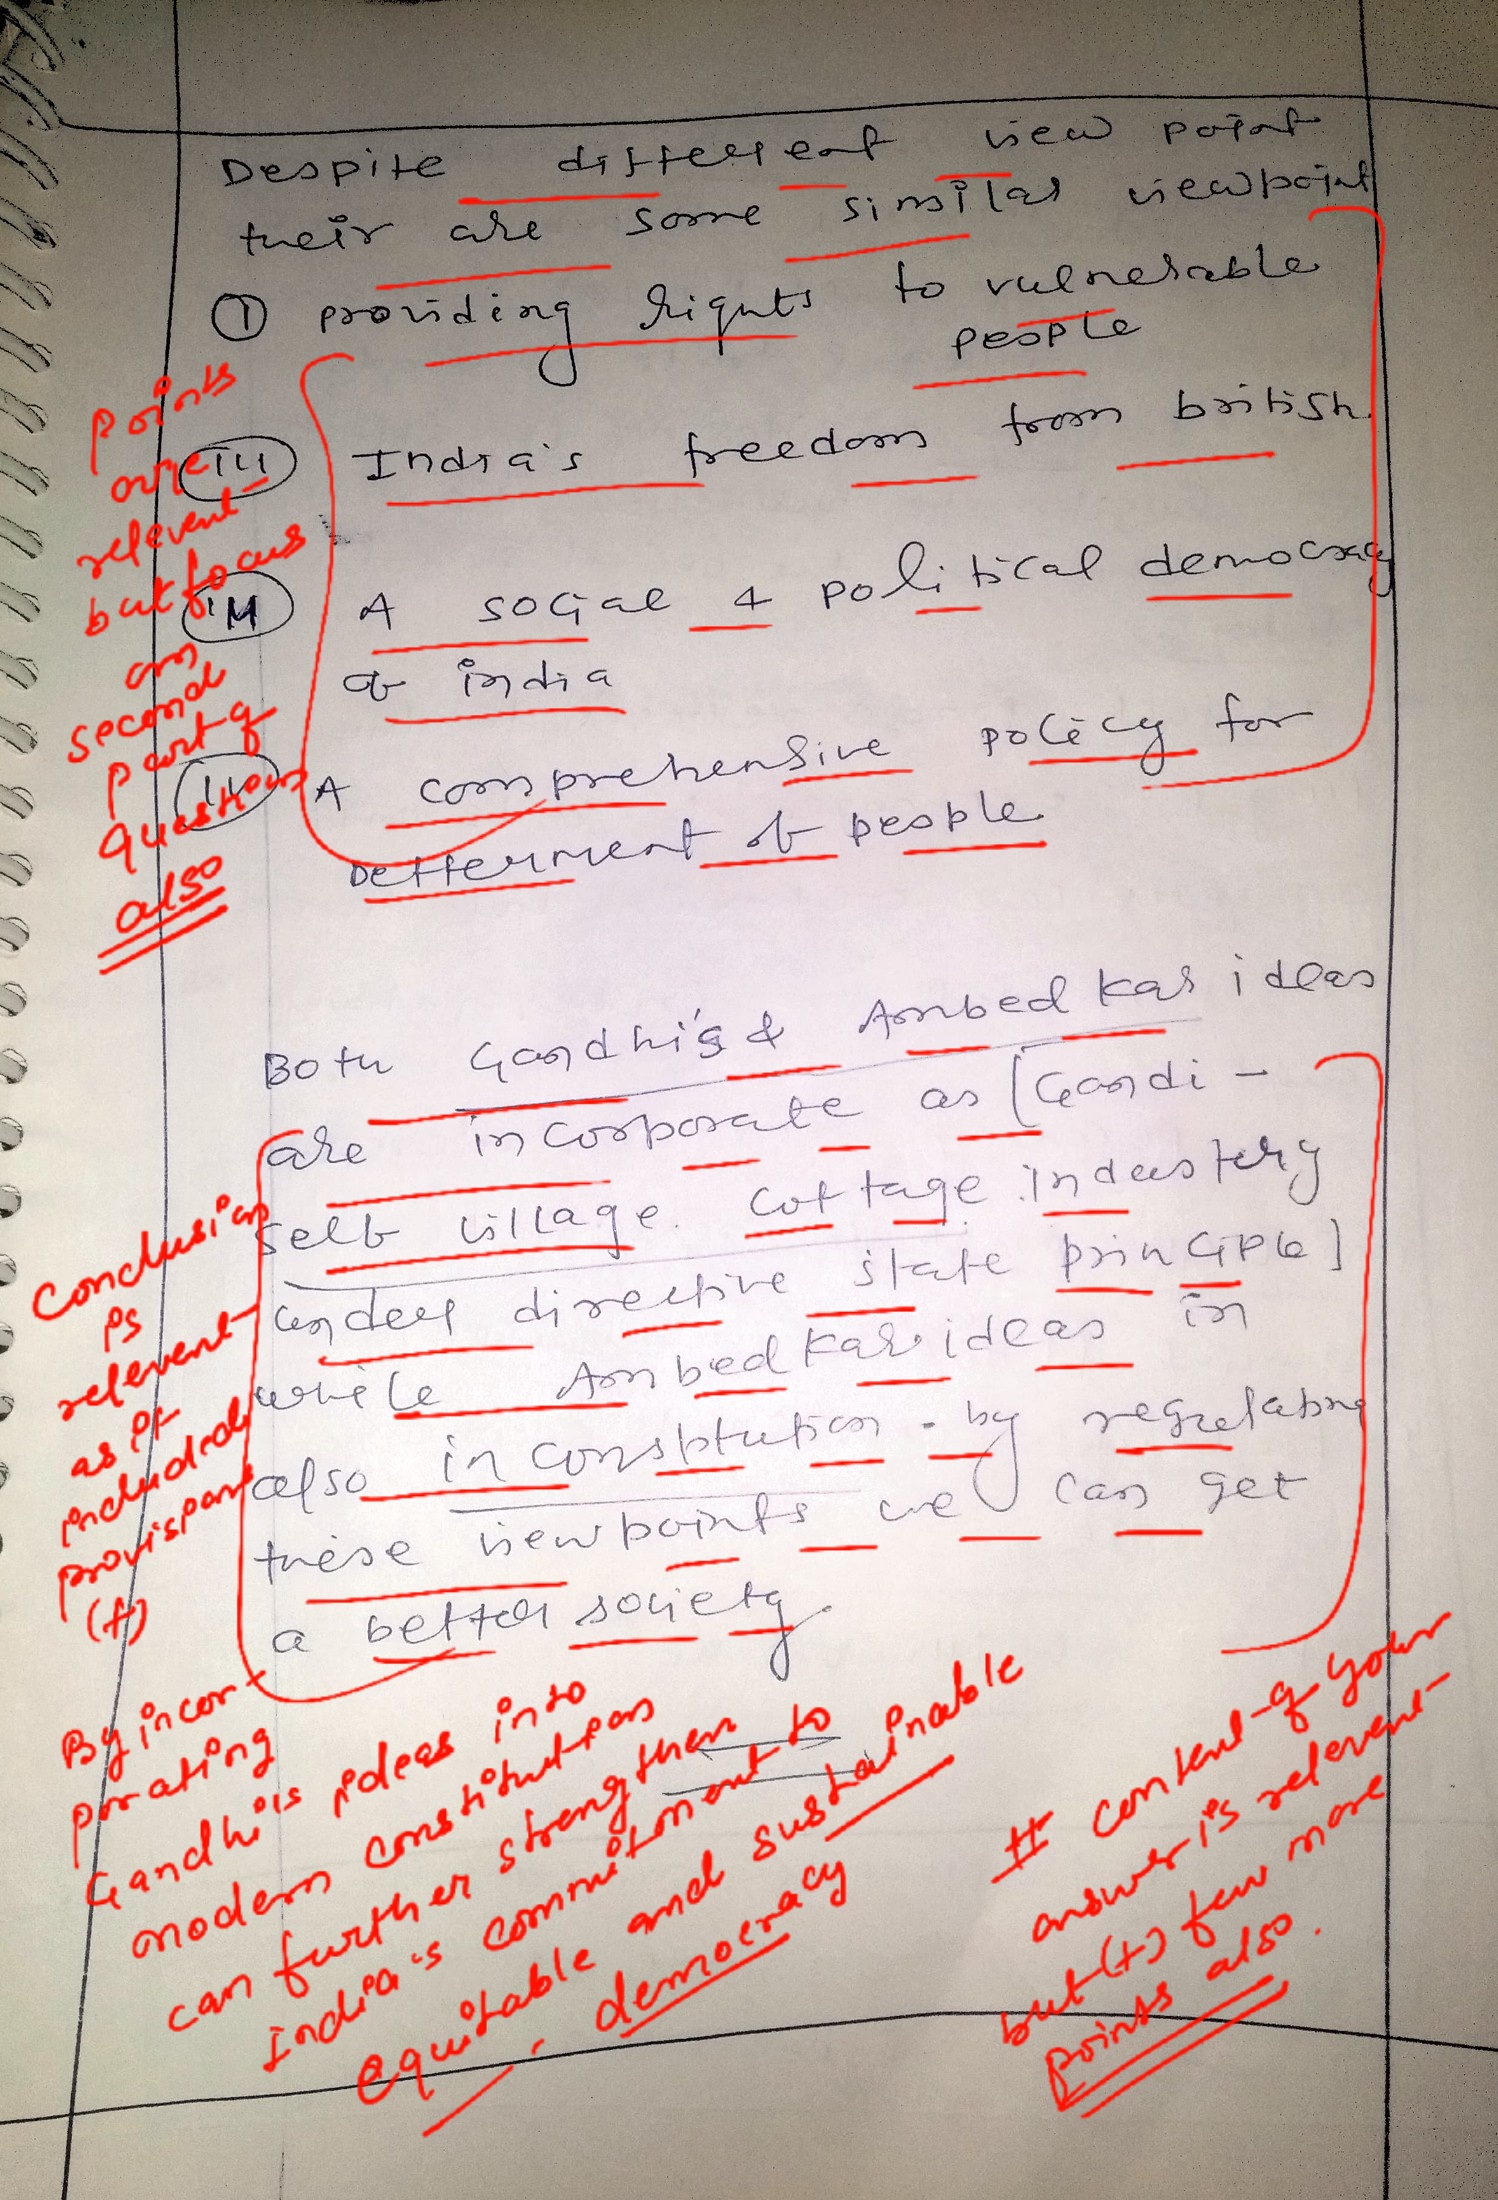 Despite different view point
their are some similar viewpoint
① providing rights to vulnerable
people
India's freedom from british
A social & political democracy
of india
A comprehensive policy for
Betterment of people
Both Gandhi's & Ambedkar ideas
are incorporate as [Gandi -
self village. Cottage industery
under directive state principle]
while Ambedkar ideas in
also in constitution. by regulating
these viewpoints we can get
a better society.
Points
are
relevent
but focus
on
second
part of
question
also
Conclusion
is
relevent
as it
included
provisions
(+)
By incor-
porating
Gandhi's ideas into
modern constitution
can further strengthen
India's commitment to
equitable and sustainable
democracy
# content of your
answer is relevent
but (+) few more
points also.